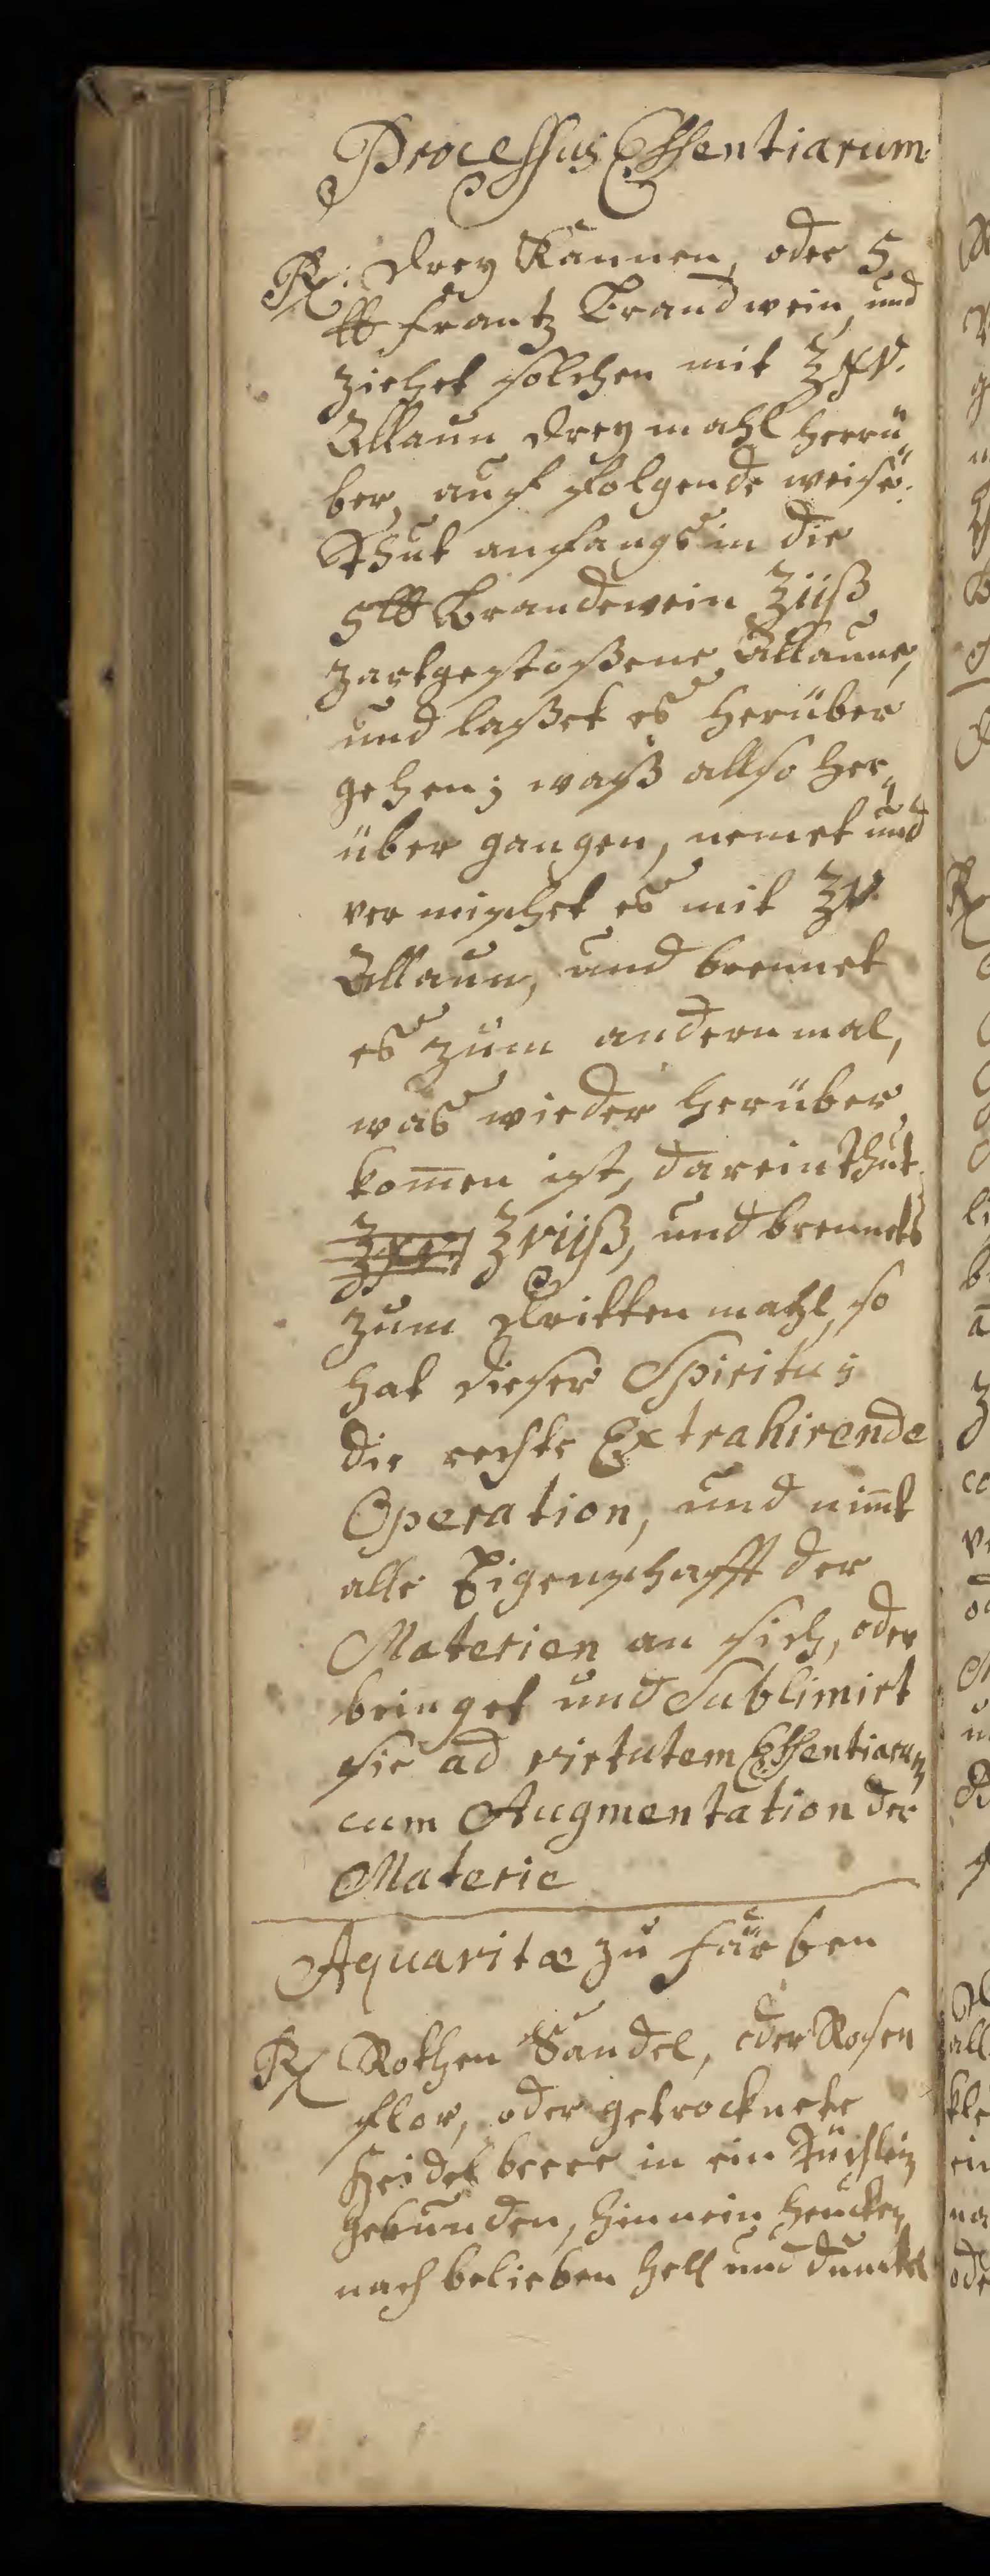 Processus Essentiarum.
℞: Drey Kannen, oder 5.
℔ Frantz Brandwein, und
ziehet solchen mit ℥xv.
Allaun drey mahl herrü„
ber, auf folgende weise:
Thut anfangs in die
5 ℔ Brandewein ℥iiß
zartgestoßene Allaune,
und laßet es herüber
gehen; waß allso her„
über gangen, nemet und
ver mischet es mit ℥v.
Allaun, und brennet
es zum andern mal,
was wieder herüber
kom̅en ist, darein thut
℥viiß, und brennets
zum dritten mahl, so
hat dieser Spiritus
die rechte Extrahirende
Operation, und nim̅t
alle Eigenschafft der
Materien an sich, oder
bringet und Sublimirt
sie ad virtutem Essentiarum
cum Augmentation der
Materie
Aquavitæ zu färben
℞ Rothen Sandel, oder Rosen
flor, oder getrocknete
Heidelbeere in ein Tüchlein
gebunden, hinnein hencken
nach belieben hell und dunckel